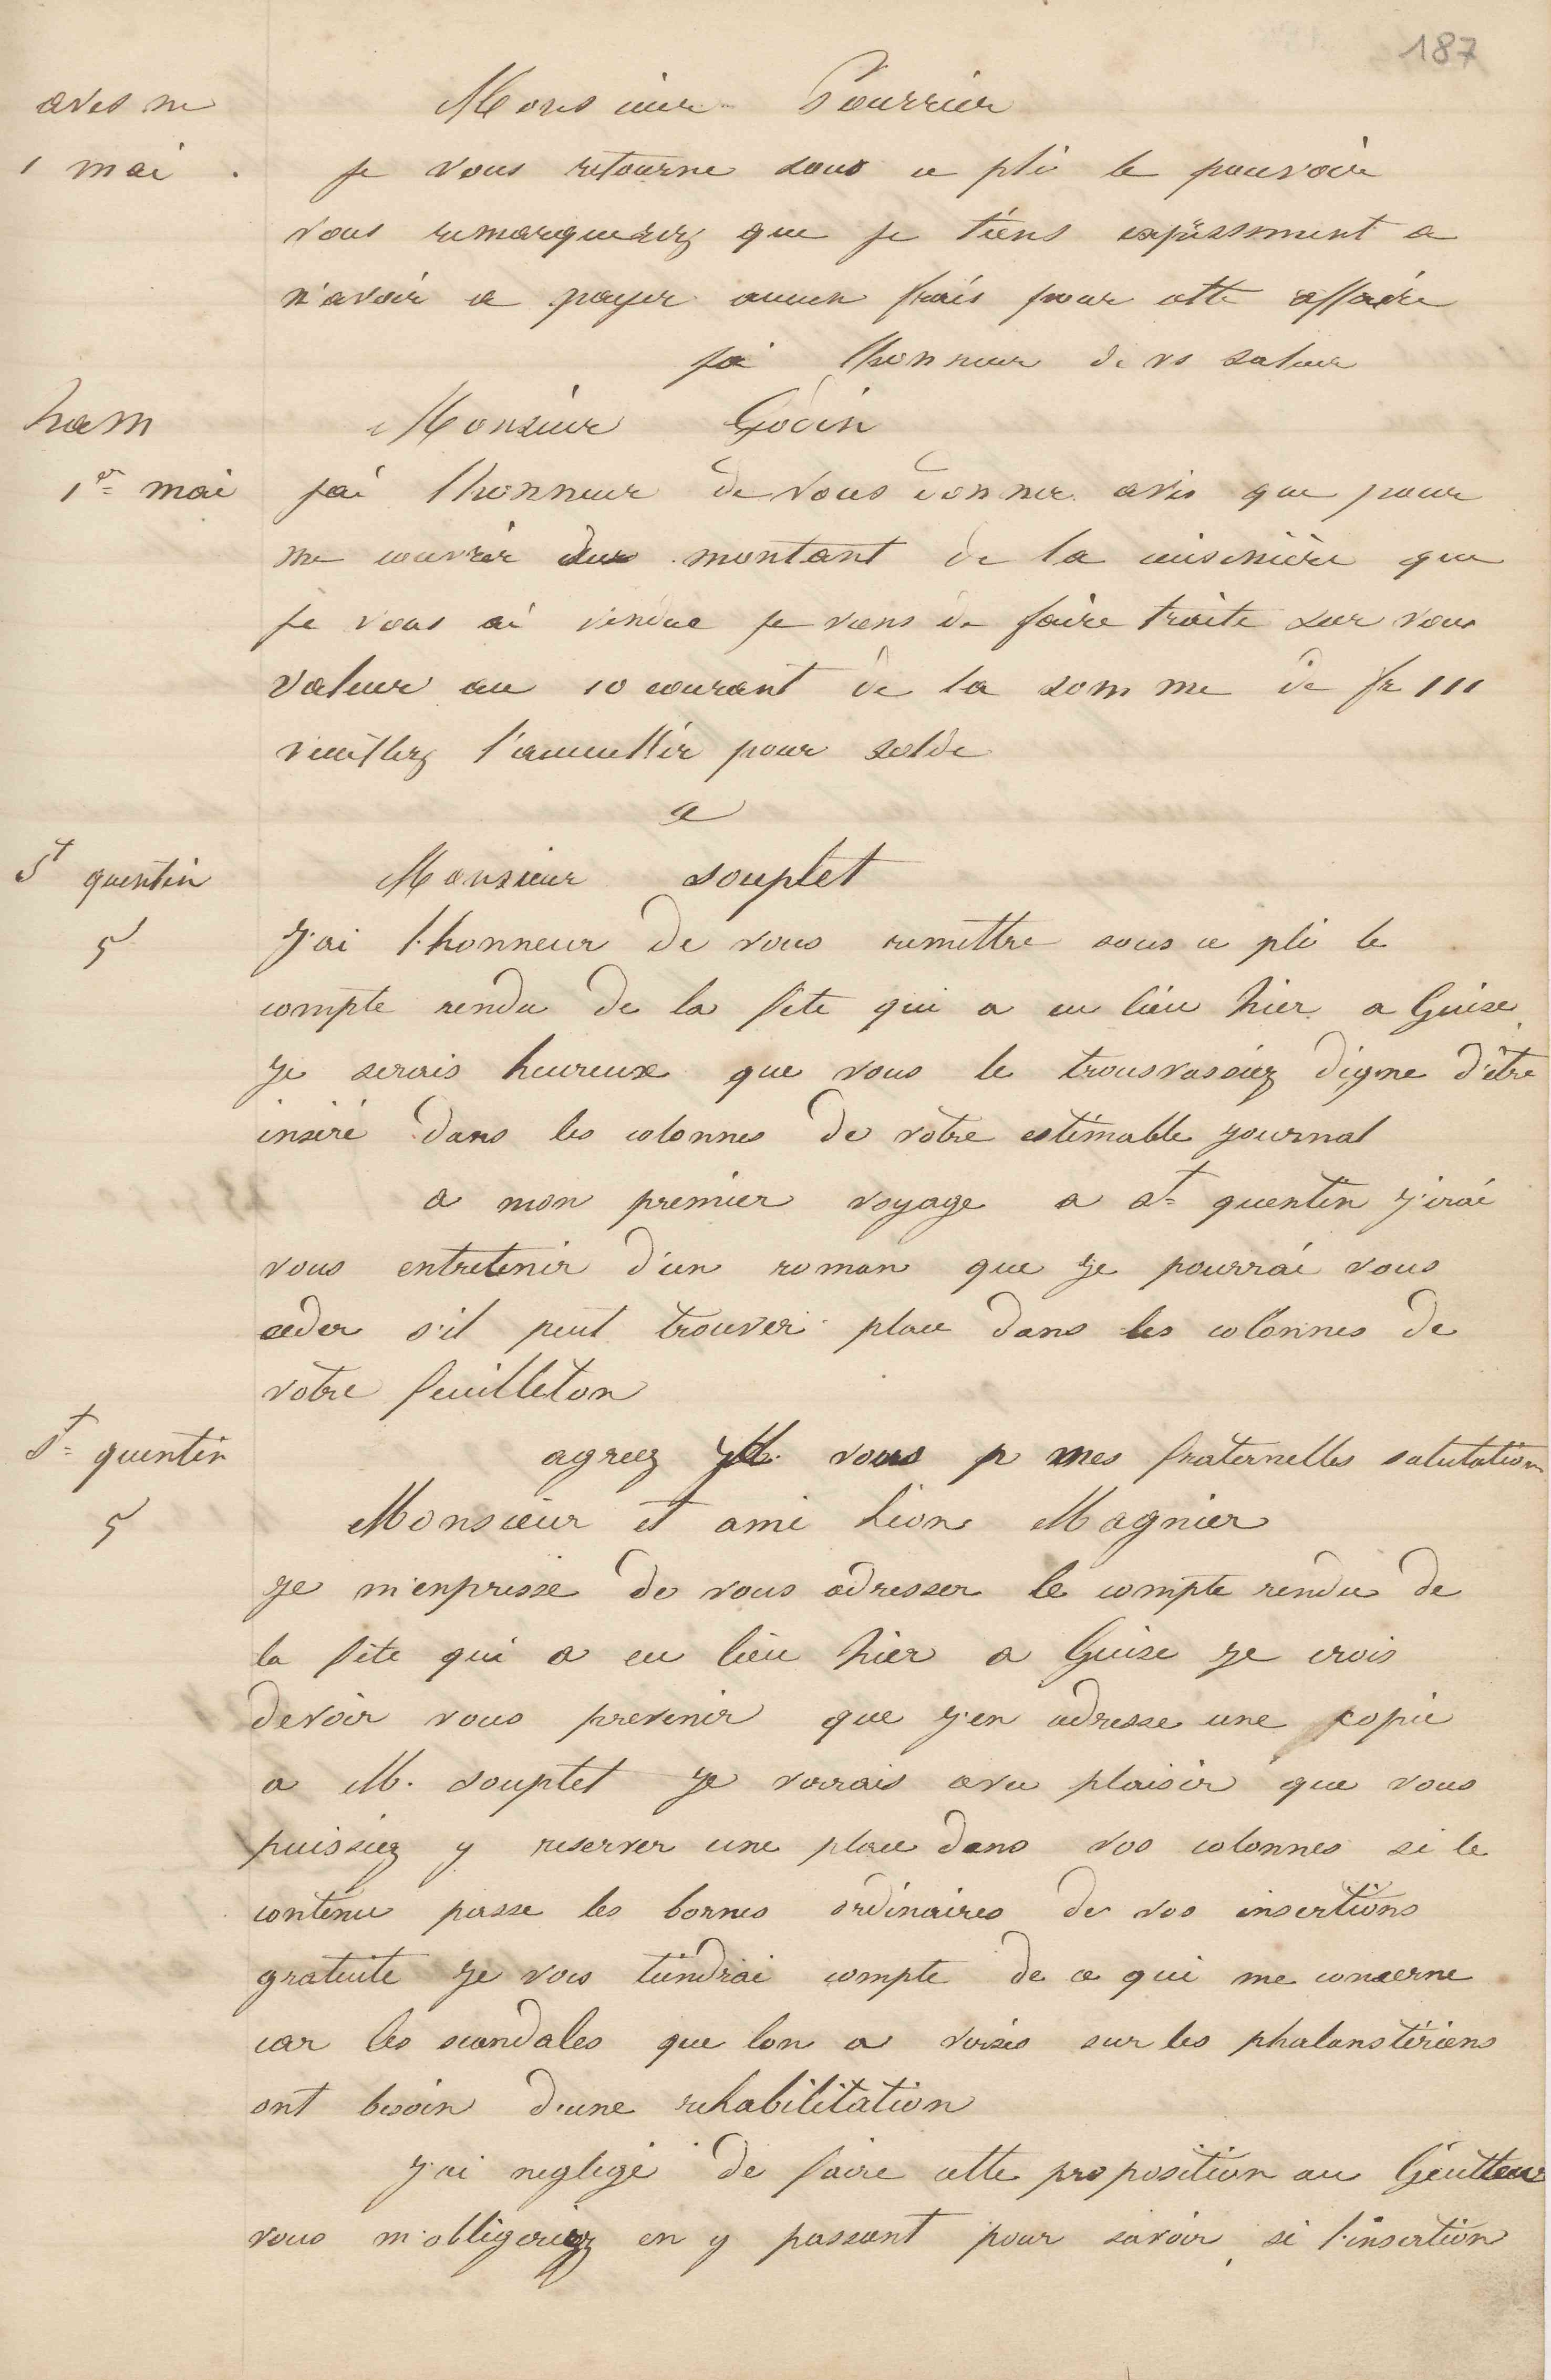 187
avesne
Monsieur Pourrier
1 mai .
je vous retourne sous ce pli le pouvoir
vous remarquerez que je tiens expressment a
n'avoir a payer aucun frais pour cette affaire
jai lhonneur de vs saluer
ham
Monsieur Godin
1er mai
jai lhonneur de vous donner avis que pour
me couvrir du montant de la cuisinière que
je vous ai vendue je viens de faire traite sur vous
valeur au 10 courant de la somme de fr 111
veuillez l'acceuillir pour solde
a
St quentin
Monsieur souplet
5
J'ai l'honneur de vous remettre sous ce pli le
compte rendu de la fete qui a eu lieu hier a Guise
je serais heureux que vous le trouvassiez digne d'être
inséré dans les colonnes de votre estimable journal
a mon premier voyage a st quentin j'irai
vous entretenir d'un roman que je pourrai vous
ceder s'il peut trouver place dans les colonnes de
votre feuilleton
agreez M. vous p mes fraternelles salutation
St quentin
5
Monsieur et ami Léon Magnier
je m'enpresse de vous adresser le compte rendu de
la fête qui a eu lieu hier a Guise je crois
devoir vous prevenir que j'en adresse une copie
a M. souplet je verrais avec plaisir que vous
puissiez y reserver une place dans vos colonnes si le
contenu passe les bornes ordinaires de vos insertions
gratuite je vous tiendrai compte de ce qui me concerne
car les scandales que lon a versés sur les phalanstériens
ont besoin d'une rehabilitation
j'ai negligé de faire cette proposition au
vous m'obligeriez en y passant pour savoir si l'insertion